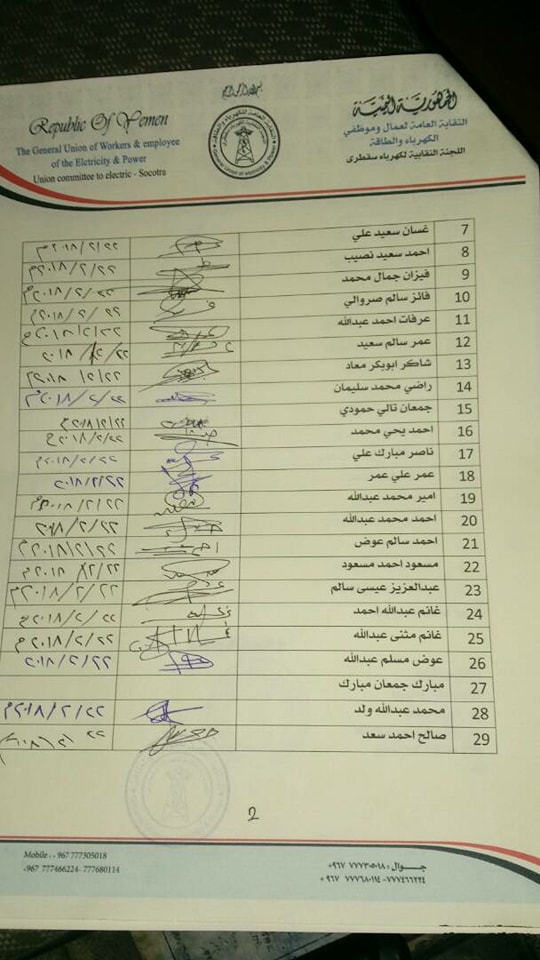 Republic Of Yemen
The General Union of Workers & employee
of the Eletricity & Power
Union committee to electric - Socotra
الجمهورية اليمنية
النقابة العامة لعمال وموظفي
الكهرباء والطاقة
اللجنة النقابية لكهرباء سقطرى
7 غسان سعيد علي ٢٠١٨/٢/٢٢م
8 احمد سعيد نصيب ٢٠١٨/٢/٢٢م
9 فيزان جمال محمد ٢٠١٨/٢/٢٢م
10 فائز سالم صروالي ٢٠١٨/٢/٢٢م
11 عرفات احمد عبدالله ٢٠١٨/٢/٢٢م
12 عمر سالم سعيد ٢٠١٨/٢/٢٢
13 شاكر ابوبكر معاد ٢٠١٨/٢/٢٢م
14 راضي محمد سليمان ٢٠١٨/٢/٢٢م
15 جمعان تالي حمودي ٢٠١٨/٢/٢٢م
16 احمد يحي محمد ٢٠١٨/٢/٢٢م
17 ناصر مبارك علي ٢٠١٨/٢/٢٢م
18 عمر علي عمر ٢٠١٨/٢/٢٢
19 امير محمد عبدالله ٢٠١٨/٢/٢٢م
20 احمد محمد عبدالله ٢٠١٨/٢/٢٢
21 احمد سالم عوض ٢٠١٨/٢/٢٢م
22 مسعود احمد مسعود ٢٠١٨/٢/٢٢م
23 عبدالعزيز عيسى سالم ٢٠١٨/٢/٢٢م
24 غانم عبدالله احمد ٢٠١٨/٢/٢٢م
25 غانم مثنى عبدالله ٢٠١٨/٢/٢٢م
26 عوض مسلم عبدالله ٢٠١٨/٢/٢٢
27 مبارك جمعان مبارك
28 محمد عبدالله ولد ٢٠١٨/٢/٢٢م
29 صالح احمد سعد
2
Mobile : - 967 777305018
+967 777466224- 777680114
جــوال : ٧٧٧٣٠٥٠١٨ ٩٦٧+
٧٧٧٤٦٦٢٢٤- ٧٧٧٦٨٠١١٤ ٩٦٧ +